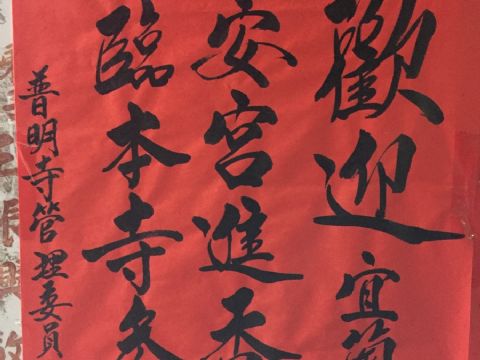 歡迎宜
安宮進香
臨本寺參
普明寺管理委員